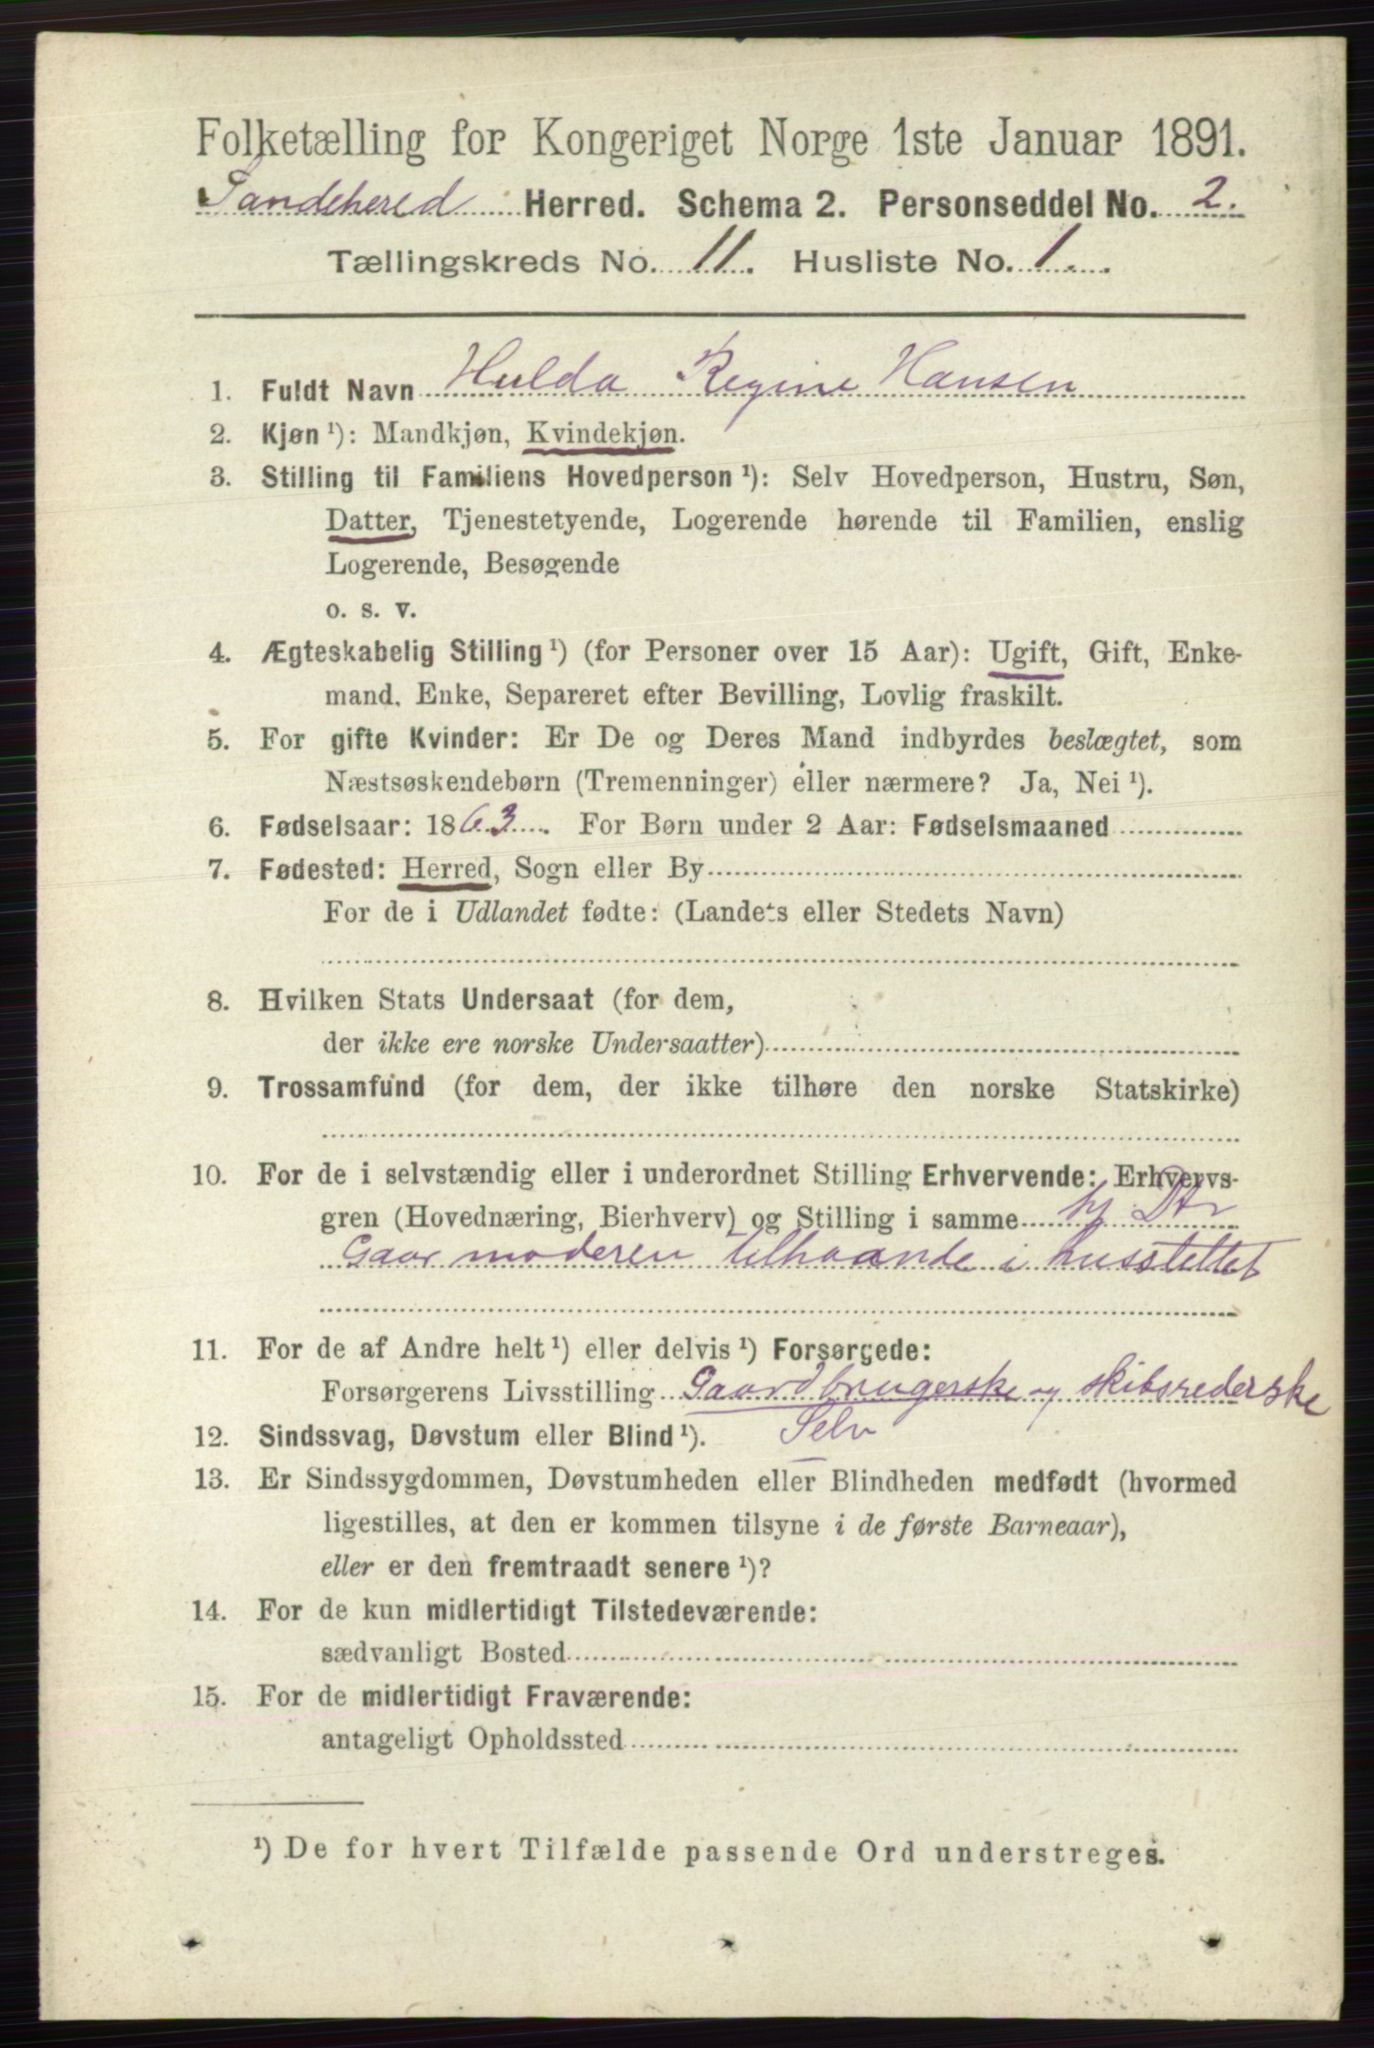 Folketælling for Kongeriget Norge 1ste Januar 1891.
Sandehered Herred. Schema 2. Personseddel No. 2.
Tællingskreds No. 11. Husliste No. 1.
1. Fuldt Navn Hulda Regine Hansen
2. Kjøn ¹): Mandkjøn, Kvindekjøn.
3. Stilling til Familiens Hovedperson ¹): Selv Hovedperson, Hustru, Søn,
Datter, Tjenestetyende, Logerende hørende til Familien, enslig
Logerende, Besøgende
o. s. v.
4. Ægteskabelig Stilling ¹) (for Personer over 15 Aar): Ugift, Gift, Enke-
mand, Enke, Separeret efter Bevilling, Lovlig fraskilt.
5. For gifte Kvinder: Er De og Deres Mand indbyrdes beslægtet, som
Næstsøskendebørn (Tremenninger) eller nærmere? Ja, Nei ¹).
6. Fødselsaar: 1863. For Børn under 2 Aar: Fødselsmaaned
7. Fødested: Herred, Sogn eller By
For de i Udlandet fødte: (Landets eller Stedets Navn)
8. Hvilken Stats Undersaat (for dem,
der ikke ere norske Undersaatter)
9. Trossamfund (for dem, der ikke tilhøre den norske Statskirke)
10. For de i selvstændig eller i underordnet Stilling Erhvervende: Erhvervs-
gren (Hovednæring, Bierhverv) og Stilling i samme hj Dtr
Gaar moderen tilhaande i husstellet
11. For de af Andre helt ¹) eller delvis ¹) Forsørgede:
Forsørgerens Livsstilling Gaardbrugerske og skibsrederske
12. Sindssvag, Døvstum eller Blind ¹). Selv
13. Er Sindssygdommen, Døvstumheden eller Blindheden medfødt (hvormed
ligestilles, at den er kommen tilsyne i de første Barneaar),
eller er den fremtraadt senere ¹)?
14. For de kun midlertidigt Tilstedeværende:
sædvanligt Bosted
15. For de midlertidigt Fraværende:
antageligt Opholdssted
¹) De for hvert Tilfælde passende Ord understreges.